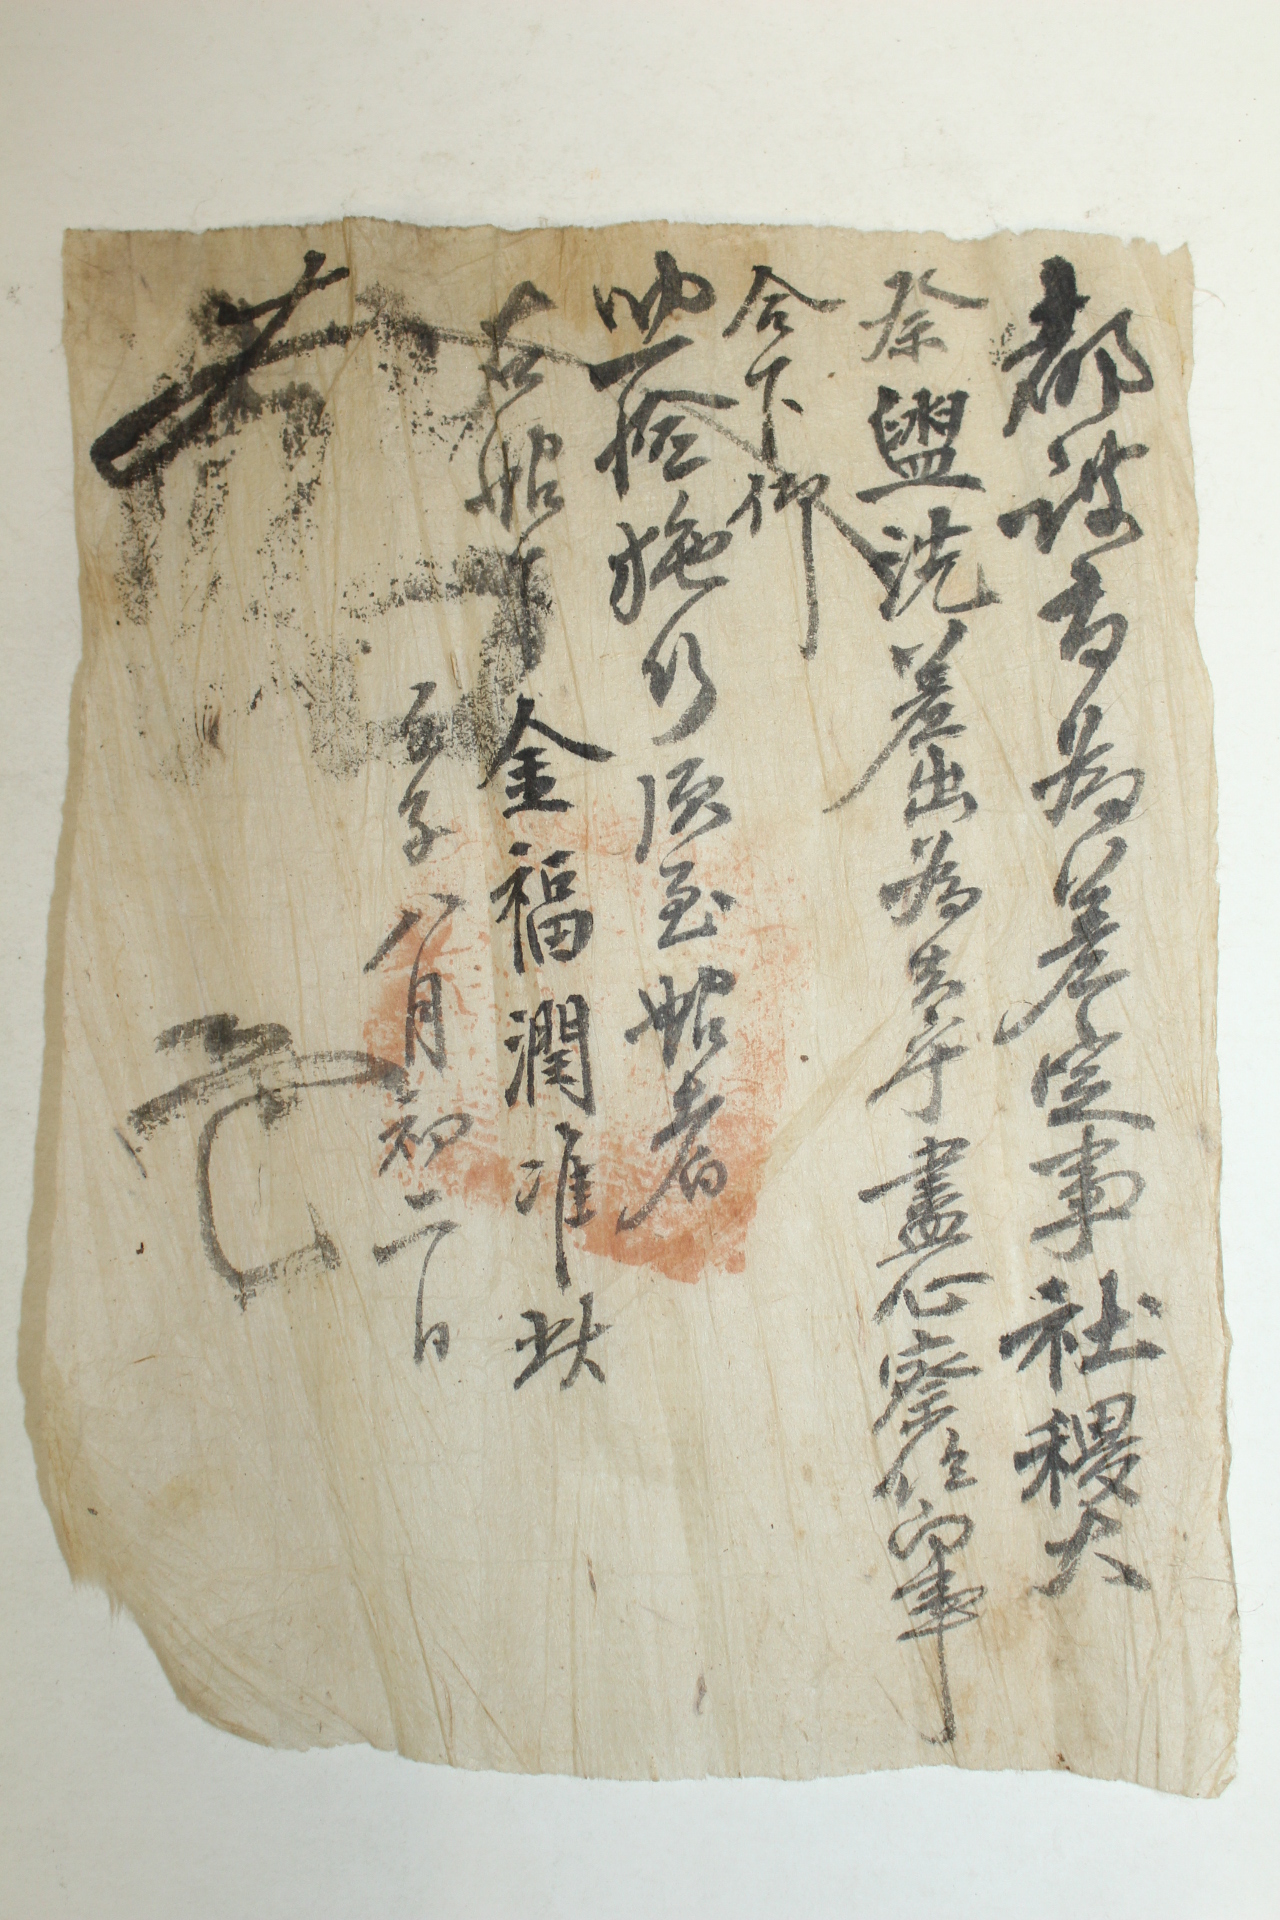 都護府爲差定事社稷大
祭盥洗差出爲去乎盡心察任向事
合下仰
照驗施行須至帖者
右帖下金福潤准此
子八月初二日